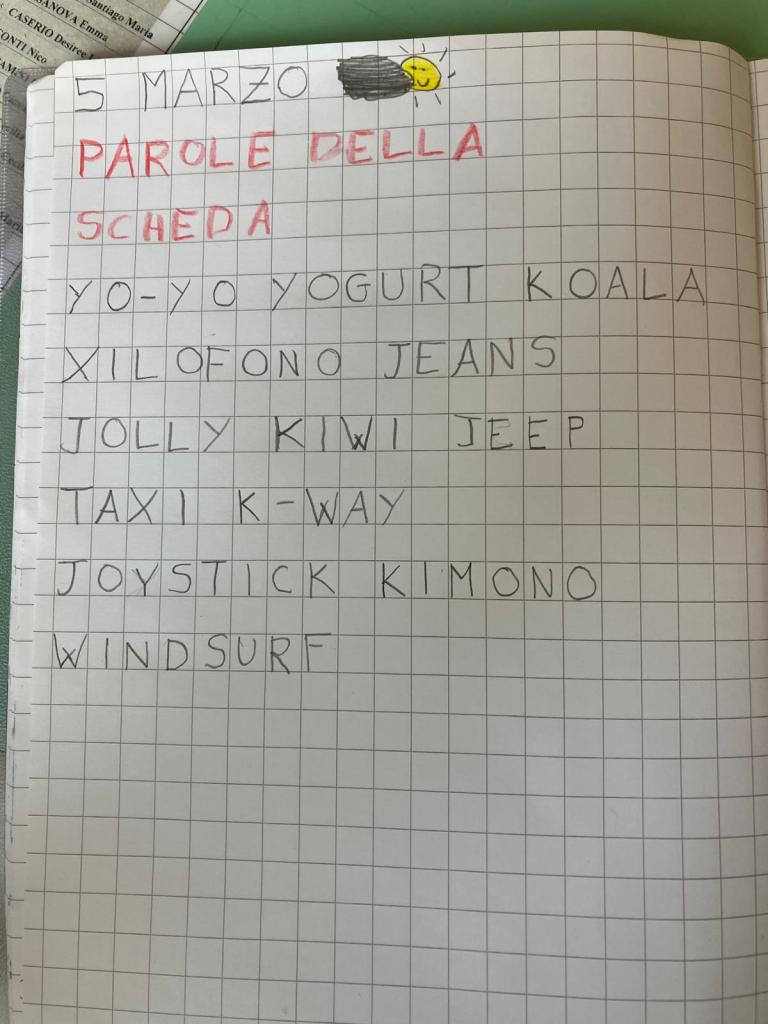 Santiago Maria
SANOVA Emma
CASERIO Desiree
CONTI Nico
5 MARZO
PAROLE DELLA
SCHEDA
YO-YO YOGURT KOALA
XILOFONO JEANS
JOLLY KIWI JEEP
TAXI K-WAY
JOYSTICK KIMONO
WINDSURF